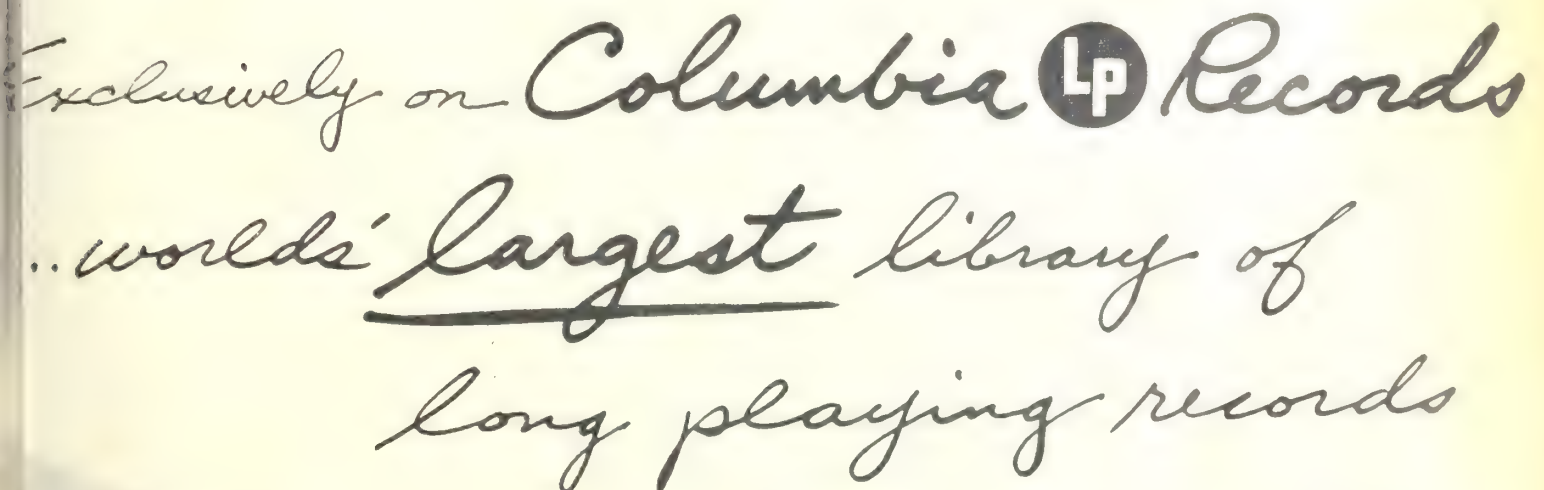 Exclusively on Columbia LP Records
..worlds' largest library of
long playing records